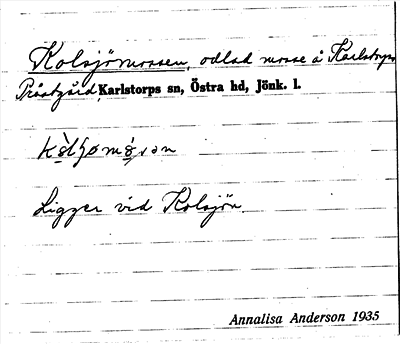 Kolsjömossen, odlad mosse å Karlstorps
Prästgård, Karlstorps sn, Östra hd, Jönk. l.
Ligger vid Kolsjön.
Annalisa Anderson 1935